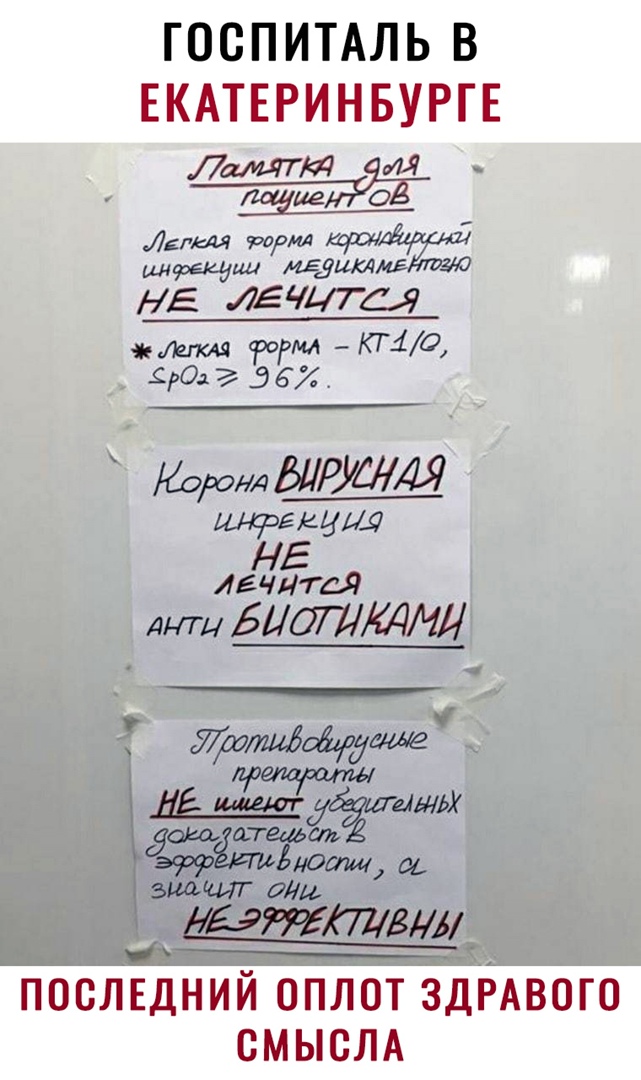 ГОСПИТАЛЬ В
ЕКАТЕРИНБУРГЕ
Памятка для
пациентов
Легкая форма коронавирусной
инфекции медикаментозно
НЕ ЛЕЧИТСЯ
* легкая форма – КТ1/0,
SpO2 ⩾ 96%.
Корона ВИРУСНАЯ
инфекция
НЕ
ЛЕЧИТСЯ
АНТИ БИОТИКАМИ
Противовирусные
препараты
НЕ имеют убедительных
доказательств
эффективности, а
значит они
НЕЭФФЕКТИВНЫ
ПОСЛЕДНИЙ ОПЛОТ ЗДРАВОГО
СМЫСЛА